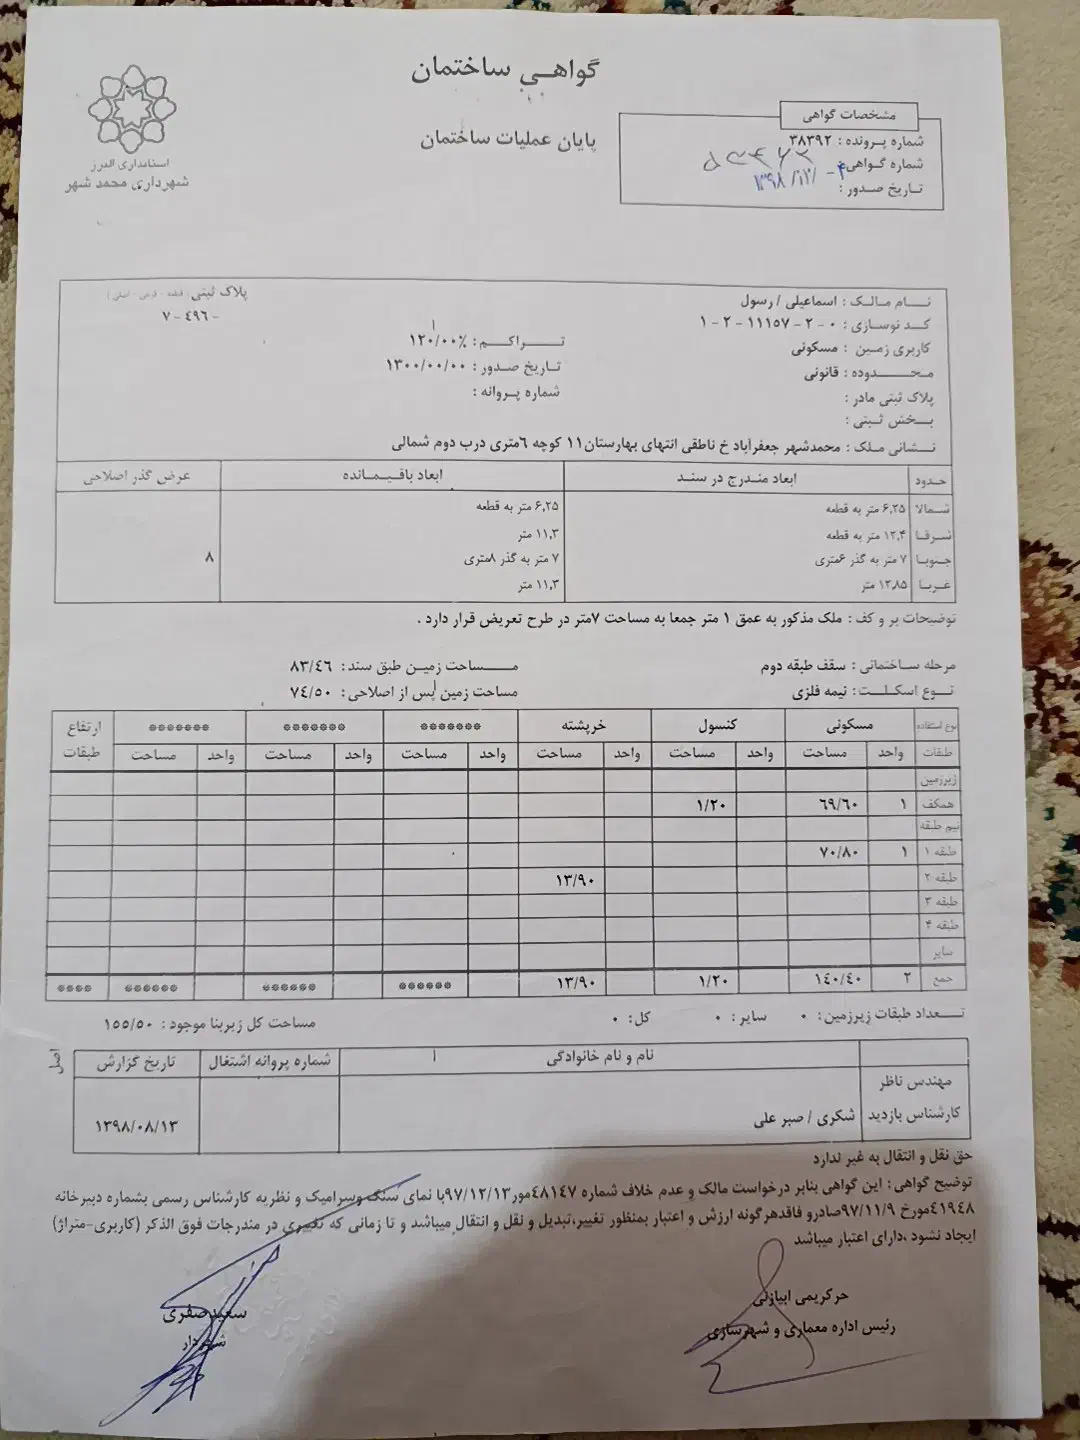 گواهی ساختمان
پایان عملیات ساختمان
استانداری البرز
شهرداری محمد شهر
مشخصات گواهی
شماره پرونده : ۳۸۳۹۲
شماره گواهی:
تاریخ صدور : ۱۳۹۸/۱۲/۰۴
نام مالک : اسماعیلی / رسول
پلاک ثبتی ( قطعه - فرعی - اصلی )
کد نوسازی : ۰ - ۲ - ۱۱۱۵۷ - ۲ - ۱
۷-٤۹٦-
کاربری زمین : مسکونی
تراکم : ۱۲۰/۰۰٪
محدوده : قانونی
تاریخ صدور : ۱۳۰۰/۰۰/۰۰
پلاک ثبتی مادر :
شماره پروانه :
بخش ثبتی :
نشانی ملک : محمدشهر جعفرآباد خ ناطقی انتهای بهارستان۱۱ کوچه ٦متری درب دوم شمالی
حدود ابعاد مندرج در سند ابعاد باقیمانده عرض گذر اصلاحی
شمالا ۶,۲۵ متر به قطعه ۶,۲۵ متر به قطعه
شرقا ۱۲,۴ متر به قطعه ۱۱,۳ متر
جنوبا ۷ متر به گذر ۶متری ۷ متر به گذر ۸متری ۸
غربا ۱۲,۸۵ متر ۱۱,۳ متر
توضیحات بر و کف : ملک مذکور به عمق ۱ متر جمعا به مساحت ۷متر در طرح تعریض قرار دارد .
مرحله ساختمانی : سقف طبقه دوم مساحت زمین طبق سند : ۸۳/٤٦
نوع اسکلت : نیمه فلزی مساحت زمین پس از اصلاحی : ۷٤/۵۰
نوع استفاده مسکونی کنسول خرپشته ******* ******* ******* ارتفاع طبقات
طبقات واحد مساحت واحد مساحت واحد مساحت واحد مساحت واحد مساحت واحد مساحت
زیرزمین
همکف ۱ ٦۹/٦۰ ۱/۲۰
نیم طبقه
طبقه ۱ ۱ ۷۰/۸۰
طبقه ۲ ۱۳/۹۰
طبقه ۳
طبقه ۴
سایر
جمع ۲ ۱٤۰/٤۰ ۱/۲۰ ۱۳/۹۰ ****** ****** ****** ****
تعداد طبقات زیرزمین : ۰ سایر : ۰ کل : ۰ مساحت کل زیربنا موجود : ۱۵۵/۵۰
اصل
نام و نام خانوادگی شماره پروانه اشتغال تاریخ گزارش
مهندس ناظر
کارشناس بازدید شکری / صبر علی ۱۳۹۸/۰۸/۱۳
حق نقل و انتقال به غیر ندارد
توضیح گواهی : این گواهی بنابر درخواست مالک و عدم خلاف شماره ٤۸۱٤۷مور۹۷/۱۲/۱۳با نمای سنگ وسرامیک و نظریه کارشناس رسمی بشماره دبیرخانه
٤۱۹٤۸مورخ ۹۷/۱۱/۹صادرو فاقدهرگونه ارزش و اعتبار بمنظور تغییر،تبدیل و نقل و انتقال میباشد و تا زمانی که تغییری در مندرجات فوق الذکر (کاربری-متراژ)
ایجاد نشود ،دارای اعتبار میباشد
حرکریمی ابیازنی
رئیس اداره معماری و شهرسازی
سعیدصفری
شهردار